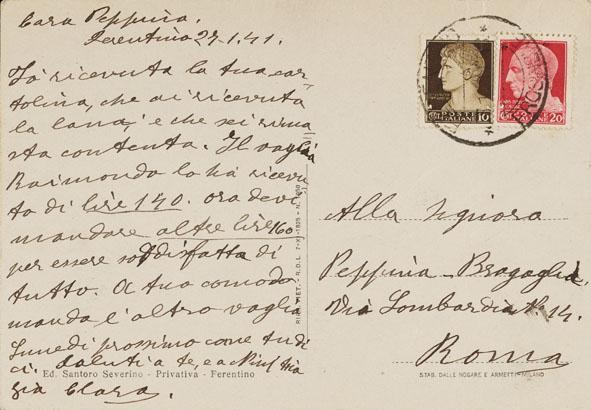 Cara Peppina.
Ferentino 29.1.41.
Iò ricevuta la tua car
tolina, che ai ricevuta
la lana, e che sei rima
sta contenta. Il vaglia
Raimondo lo ha ricevu
to di lire 140. ora devi
mandare altre lire 60
per essere soddisfatta di
tutto. a tuo comodo
manda l'altro vaglia
Lunedì prossimo come tu di
ci. Saluti a te, e a
zia Clara.
Ed. Santoro Severino - Privativa - Ferentino
POSTE ITALIANE
10
20
Alla Signora
Peppina Bragaglia
Via Lombardia N. 14.
Roma
STAB. DALLE NOGARE E ARMETTI-MILANO